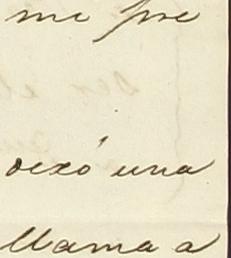 me pre
dexó una
llama a